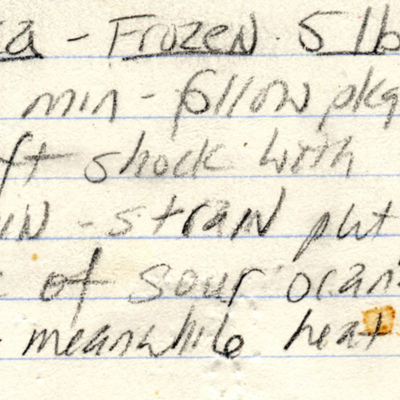 a - Frozen 5 lb
min - follow pkg
ft shock with
IN - strain put
of sour oran
meanwhile heat